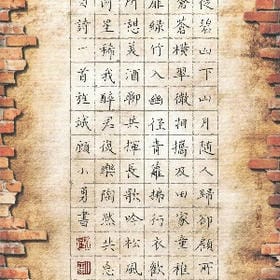 從碧山下山月隨人歸卻顧所
蒼蒼橫翠微相攜及田家童稚
扉綠竹入幽徑青蘿拂行衣歡
所憩美酒聊共揮長歌吟松風
河星稀我醉君復樂陶然共忘
詩一首旌誠顧小勇書